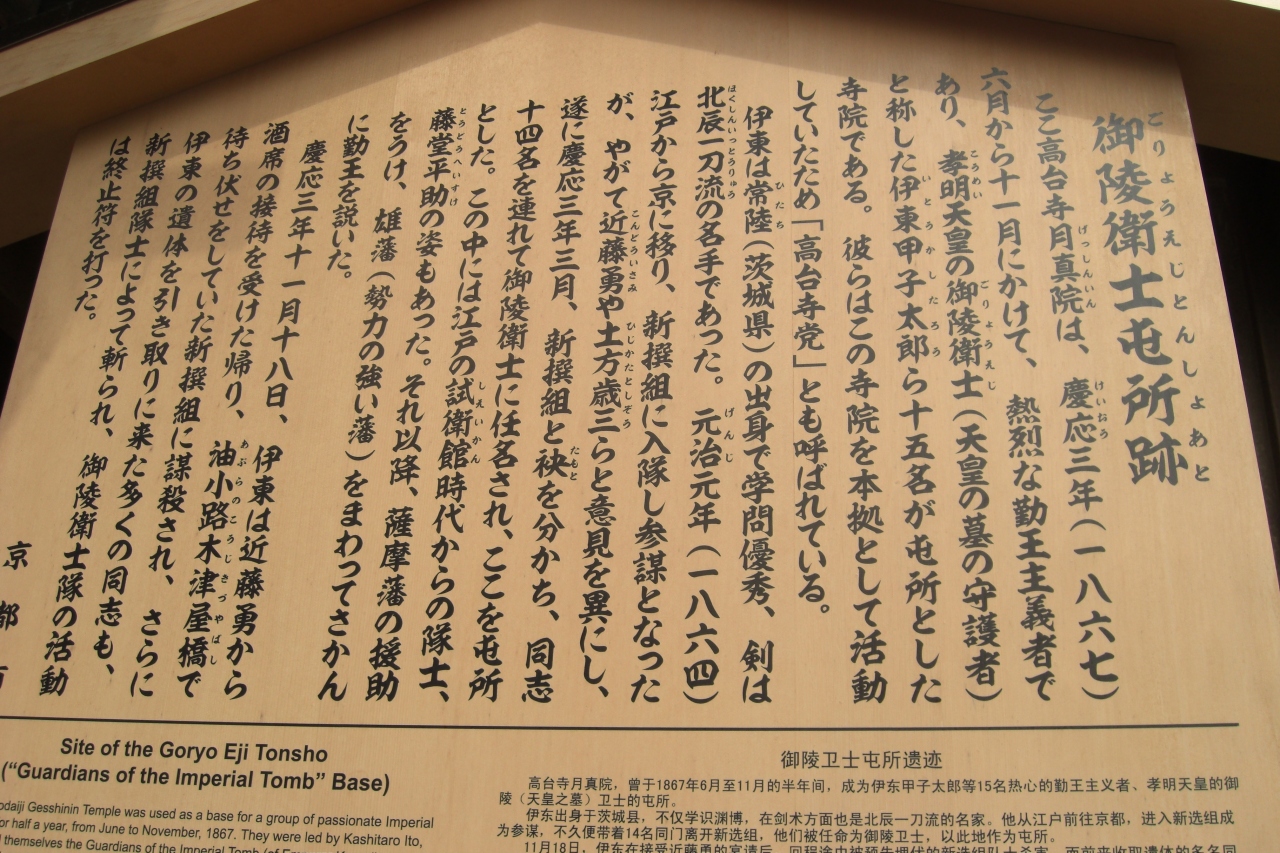 御陵衛士屯所跡
ここ高台寺月真院は、慶応三年(一八六七)
六月から十一月にかけて、熱烈な勤王主義者で
あり、孝明天皇の御陵衛士(天皇の墓の守護者)
と称した伊東甲子太郎ら十五名が屯所とした
寺院である。彼らはこの寺院を本拠として活動
していたため「高台寺党」とも呼ばれている。
伊東は常陸(茨城県)の出身で学問優秀、剣は
北辰一刀流の名手であった。元治元年(一八六四)
江戸から京に移り、新撰組に入隊し参謀となった
が、やがて近藤勇や土方歳三らと意見を異にし、
遂に慶応三年三月、新撰組と袂を分かち、同志
十四名を連れて御陵衛士に任名され、ここを屯所
とした。この中には江戸の試衛館時代からの隊士、
藤堂平助の姿もあった。それ以降、薩摩藩の援助
をうけ、雄藩(勢力の強い藩)をまわってさかん
に勤王を説いた。
慶応三年十一月十八日、伊東は近藤勇から
酒席の接待を受けた帰り、油小路木津屋橋で
待ち伏せをしていた新撰組に謀殺され、さらに
伊東の遺体を引き取りに来た多くの同志も、
新撰組隊士によって斬られ、御陵衛士隊の活動
は終止符を打った。
京都
Site of the Goryo Eji Tonsho
("Guardians of the Imperial Tomb" Base)
Gesshinin Temple was used as a base for a group of passionate Imperial
half a year, from June to November, 1867. They were led by Kashitaro Ito,
themselves the Guardians of the Imperial Tomb
御陵卫士屯所遗迹
高台寺月真院，曾于1867年6月至11月的半年间，成为伊东甲子太郎等15名热心的勤王主义者、孝明天皇的御
陵（天皇之墓）卫士的屯所。
伊东出身于茨城县，不仅学识渊博，在剑术方面也是北辰一刀流的名家。他从江户前往京都，进入新选组成
为参谋，不久便带着14名同门离开新选组，他们被任命为御陵卫士，以此地作为屯所。
11月18日，伊东在接受近藤勇的宴请后，回程途中被预先埋伏的新选组队士杀害，而前来收取遗体的多名同